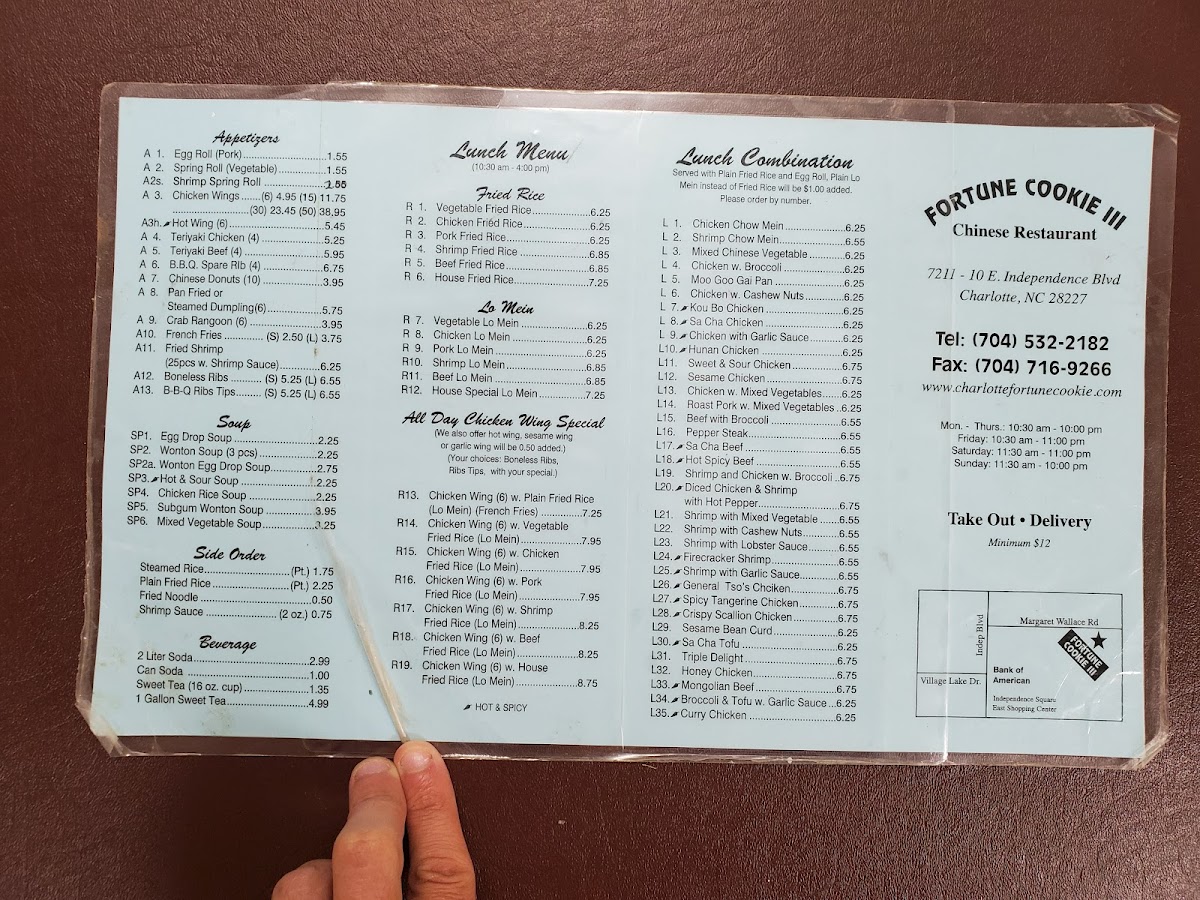 Appetizers
A 1. Egg Roll (Pork)....................1.55
A 2. Spring Roll (Vegetable)..............1.55
A2s. Shrimp Spring Roll ....................
A 3. Chicken Wings ......(6) 4.95 (15) 11.75
....................(30) 23.45 (50) 38.95
A3h. Hot Wing (6)....................5.45
A 4. Teriyaki Chicken (4) ....................5.25
A 5. Teriyaki Beef (4) ....................5.95
A 6. B.B.Q. Spare Rib (4) ....................6.75
A 7. Chinese Donuts (10) ....................3.95
A 8. Pan Fried or
Steamed Dumpling(6)....................5.75
A 9. Crab Rangoon (6) ....................3.95
A10. French Fries ..............(S) 2.50 (L) 3.75
A11. Fried Shrimp
(25pcs w. Shrimp Sauce)..............6.25
A12. Boneless Ribs ..........(S) 5.25 (L) 6.55
A13. B-B-Q Ribs Tips........(S) 5.25 (L) 6.55
Soup
SP1. Egg Drop Soup ....................2.25
SP2. Wonton Soup (3 pcs)....................2.25
SP2a. Wonton Egg Drop Soup..............2.75
SP3. Hot & Sour Soup ....................2.25
SP4. Chicken Rice Soup ....................2.25
SP5. Subgum Wonton Soup ..............3.95
SP6. Mixed Vegetable Soup..............3.25
Side Order
Steamed Rice....................(Pt.) 1.75
Plain Fried Rice....................(Pt.) 2.25
Fried Noodle ....................0.50
Shrimp Sauce ....................(2 oz.) 0.75
Beverage
2 Liter Soda....................2.99
Can Soda ....................1.00
Sweet Tea (16 oz. cup)....................1.35
1 Gallon Sweet Tea....................4.99
Lunch Menu
(10:30 am - 4:00 pm)
Fried Rice
R 1. Vegetable Fried Rice....................6.25
R 2. Chicken Fried Rice....................6.25
R 3. Pork Fried Rice....................6.25
R 4. Shrimp Fried Rice....................6.85
R 5. Beef Fried Rice....................6.85
R 6. House Fried Rice....................7.25
Lo Mein
R 7. Vegetable Lo Mein ....................6.25
R 8. Chicken Lo Mein ....................6.25
R 9. Pork Lo Mein ....................6.25
R10. Shrimp Lo Mein ....................6.85
R11. Beef Lo Mein ....................6.85
R12. House Special Lo Mein..............7.25
All Day Chicken Wing Special
(We also offer hot wing, sesame wing
or garlic wing will be 0.50 added.)
(Your choices: Boneless Ribs,
Ribs Tips, with your special.)
R13. Chicken Wing (6) w. Plain Fried Rice
(Lo Mein) (French Fries) ..............7.25
R14. Chicken Wing (6) w. Vegetable
Fried Rice (Lo Mein)....................7.95
R15. Chicken Wing (6) w. Chicken
Fried Rice (Lo Mein)....................7.95
R16. Chicken Wing (6) w. Pork
Fried Rice (Lo Mein)....................7.95
R17. Chicken Wing (6) w. Shrimp
Fried Rice (Lo Mein)....................8.25
R18. Chicken Wing (6) w. Beef
Fried Rice (Lo Mein)....................8.25
R19. Chicken Wing (6) w. House
Fried Rice (Lo Mein)....................8.75
HOT & SPICY
Lunch Combination
Served with Plain Fried Rice and Egg Roll, Plain Lo
Mein instead of Fried Rice will be $1.00 added.
Please order by number.
L 1. Chicken Chow Mein....................6.25
L 2. Shrimp Chow Mein....................6.55
L 3. Mixed Chinese Vegetable..............6.25
L 4. Chicken w. Broccoli ....................6.25
L 5. Moo Goo Gai Pan ....................6.25
L 6. Chicken w. Cashew Nuts..............6.25
L 7. Kou Bo Chicken ....................6.25
L 8. Sa Cha Chicken ....................6.25
L 9. Chicken with Garlic Sauce..............6.25
L10. Hunan Chicken ....................6.25
L11. Sweet & Sour Chicken ..............6.75
L12. Sesame Chicken ....................6.75
L13. Chicken w. Mixed Vegetables.......6.25
L14. Roast Pork w. Mixed Vegetables ..6.25
L15. Beef with Broccoli ....................6.25
L16. Pepper Steak....................6.25
L17. Sa Cha Beef ....................6.25
L18. Hot Spicy Beef ....................6.55
L19. Shrimp and Chicken w. Broccoli ..6.25
L20. Diced Chicken & Shrimp
with Hot Pepper....................6.75
L21. Shrimp with Mixed Vegetable ......6.55
L22. Shrimp with Cashew Nuts............6.55
L23. Shrimp with Lobster Sauce..........6.55
L24. Firecracker Shrimp....................6.55
L25. Shrimp with Garlic Sauce............6.55
L26. General Tso's Chciken..............6.75
L27. Spicy Tangerine Chicken............6.75
L28. Crispy Scallion Chicken ............6.75
L29. Sesame Bean Curd....................6.25
L30. Sa Cha Tofu ....................6.25
L31. Triple Delight ....................6.75
L32. Honey Chicken....................6.75
L33. Mongolian Beef ....................6.75
L34. Broccoli & Tofu w. Garlic Sauce...6.25
L35. Curry Chicken ....................6.25
FORTUNE COOKIE III
Chinese Restaurant
7211 - 10 E. Independence Blvd
Charlotte, NC 28227
Tel: (704) 532-2182
Fax: (704) 716-9266
www.charlottefortunecookie.com
Mon. - Thurs.: 10:30 am - 10:00 pm
Friday: 10:30 am - 11:00 pm
Saturday: 11:30 am - 11:00 pm
Sunday: 11:30 am - 10:00 pm
Take Out • Delivery
Minimum $12
Indep Blvd
Margaret Wallace Rd
FORTUNE COOKIE III
Village Lake Dr.
Bank of
American
Independence Square
East Shopping Center